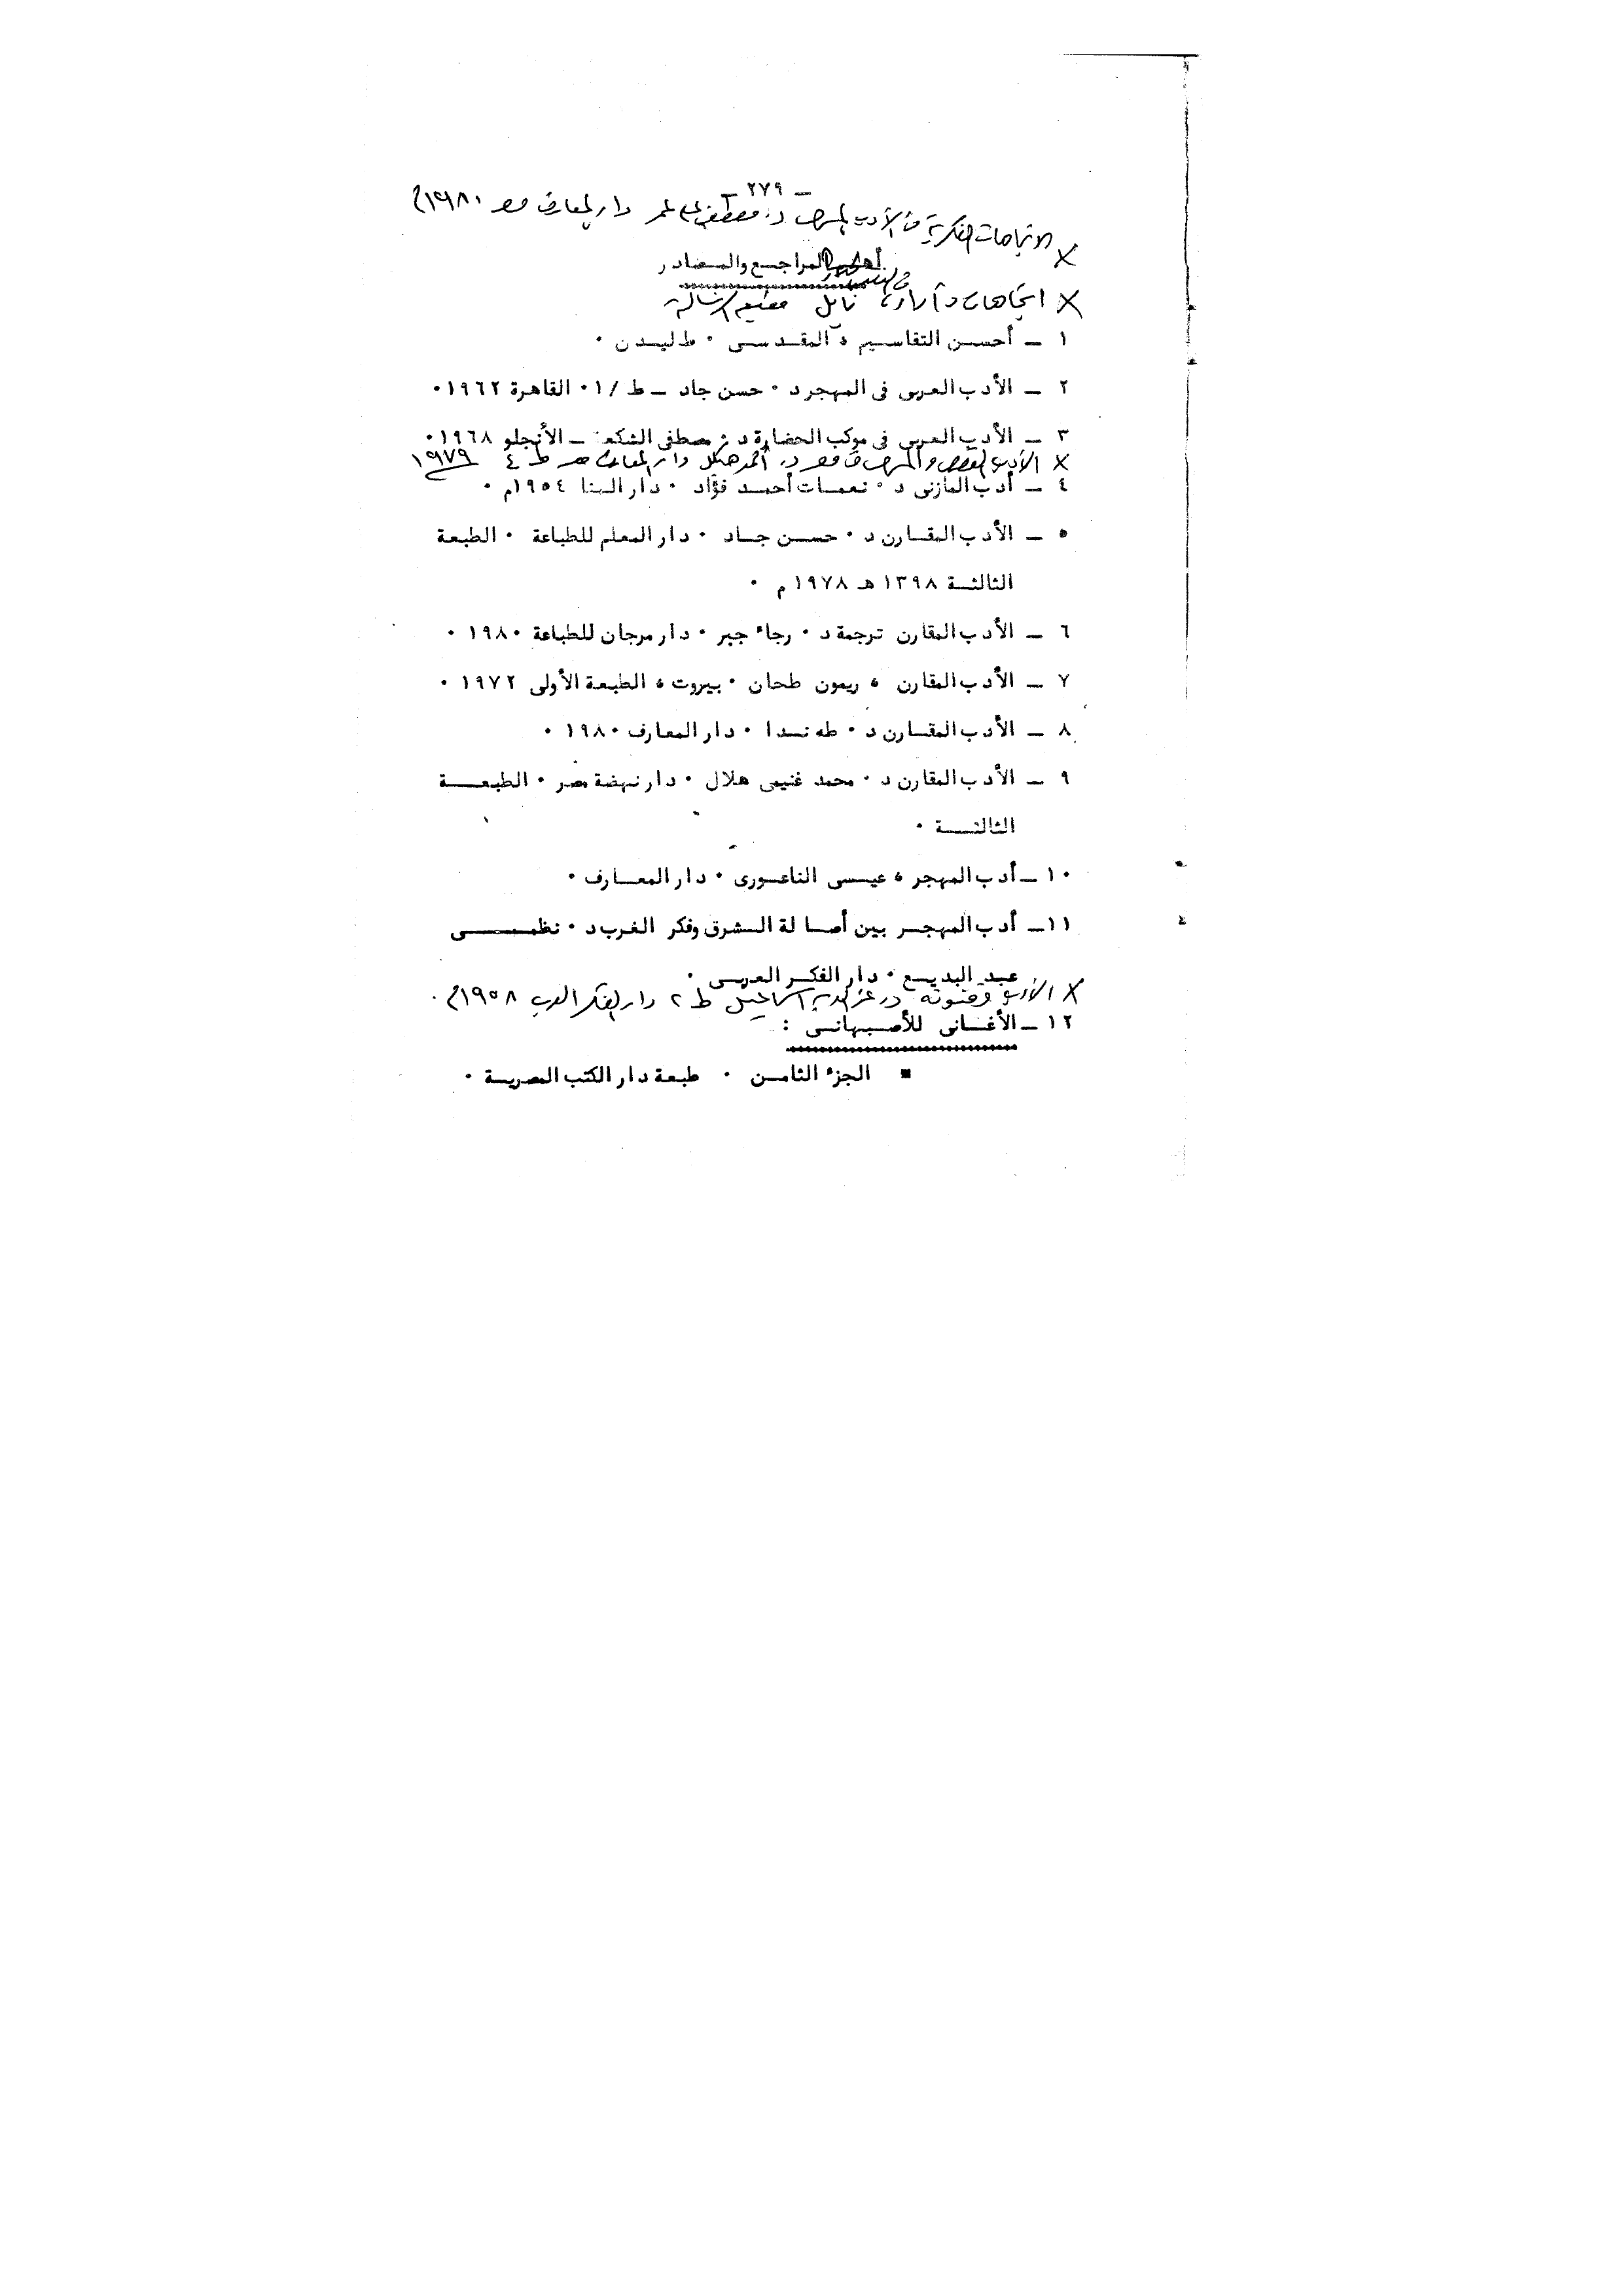 ـ ٢٧٩ ـ
× الاتجاهات الفكرية فى الأدب المسرحى د. مصطفى على عمر دار المعارف مصر ١٩٨٠م
أهم المراجع والمصادر
× اتجاهات وآراء فى النقد نايل مطبعة الرسالة
١ ـ أحسن التقاسيم ، المقدسى ٠ ط ليدن ٠
٢ ـ الأدب العربى فى المهجر د ٠ حسن جاد ـ ط /١ ٠ القاهرة ١٩٦٢ ٠
٣ ـ الأدب العربى فى موكب الحضارة د . مصطفى الشكعة ـ الأنجلو ١٩٦٨ ٠
× الأدب القصصى والمسرحى فى مصر د. أحمد هيكل دار المعارف مصر ط ٤ ١٩٧٩
٤ ـ أدب المازنى د ٠ نعمات أحمد فؤاد ٠ دار الهنا ١٩٥٤م ٠
٥ ـ الأدب المقارن د ٠ حسن جاد ٠ دار المعلم للطباعة ٠ الطبعة
الثالثة ١٣٩٨ هـ ١٩٧٨ م ٠
٦ ـ الأدب المقارن ترجمة د ٠ رجاء جبر ٠ دار مرجان للطباعة ١٩٨٠ ٠
٧ ـ الأدب المقارن ، ريمون طحان ٠ بيروت ، الطبعة الأولى ١٩٧٢ ٠
٨ ـ الأدب المقارن د ٠ طه ندا ٠ دار المعارف ١٩٨٠ ٠
٩ ـ الأدب المقارن د ٠ محمد غنيمى هلال ٠ دار نهضة مصر ٠ الطبعة
الثالثة ٠
١٠ ـ أدب المهجر ، عيسى الناعورى ٠ دار المعارف ٠
١١ ـ أدب المهجر بين أصالة الشرق وفكر الغرب د ٠ نظمى
عبد البديع ٠ دار الفكر العربى ٠
× الأدب وفنونه د. عز الدين اسماعيل ط ٢ دار الفكر العربى ١٩٥٨م ٠
١٢ ـ الأغانى للأصبهانى :
■ الجزء الثامن ٠ طبعة دار الكتب المصرية ٠